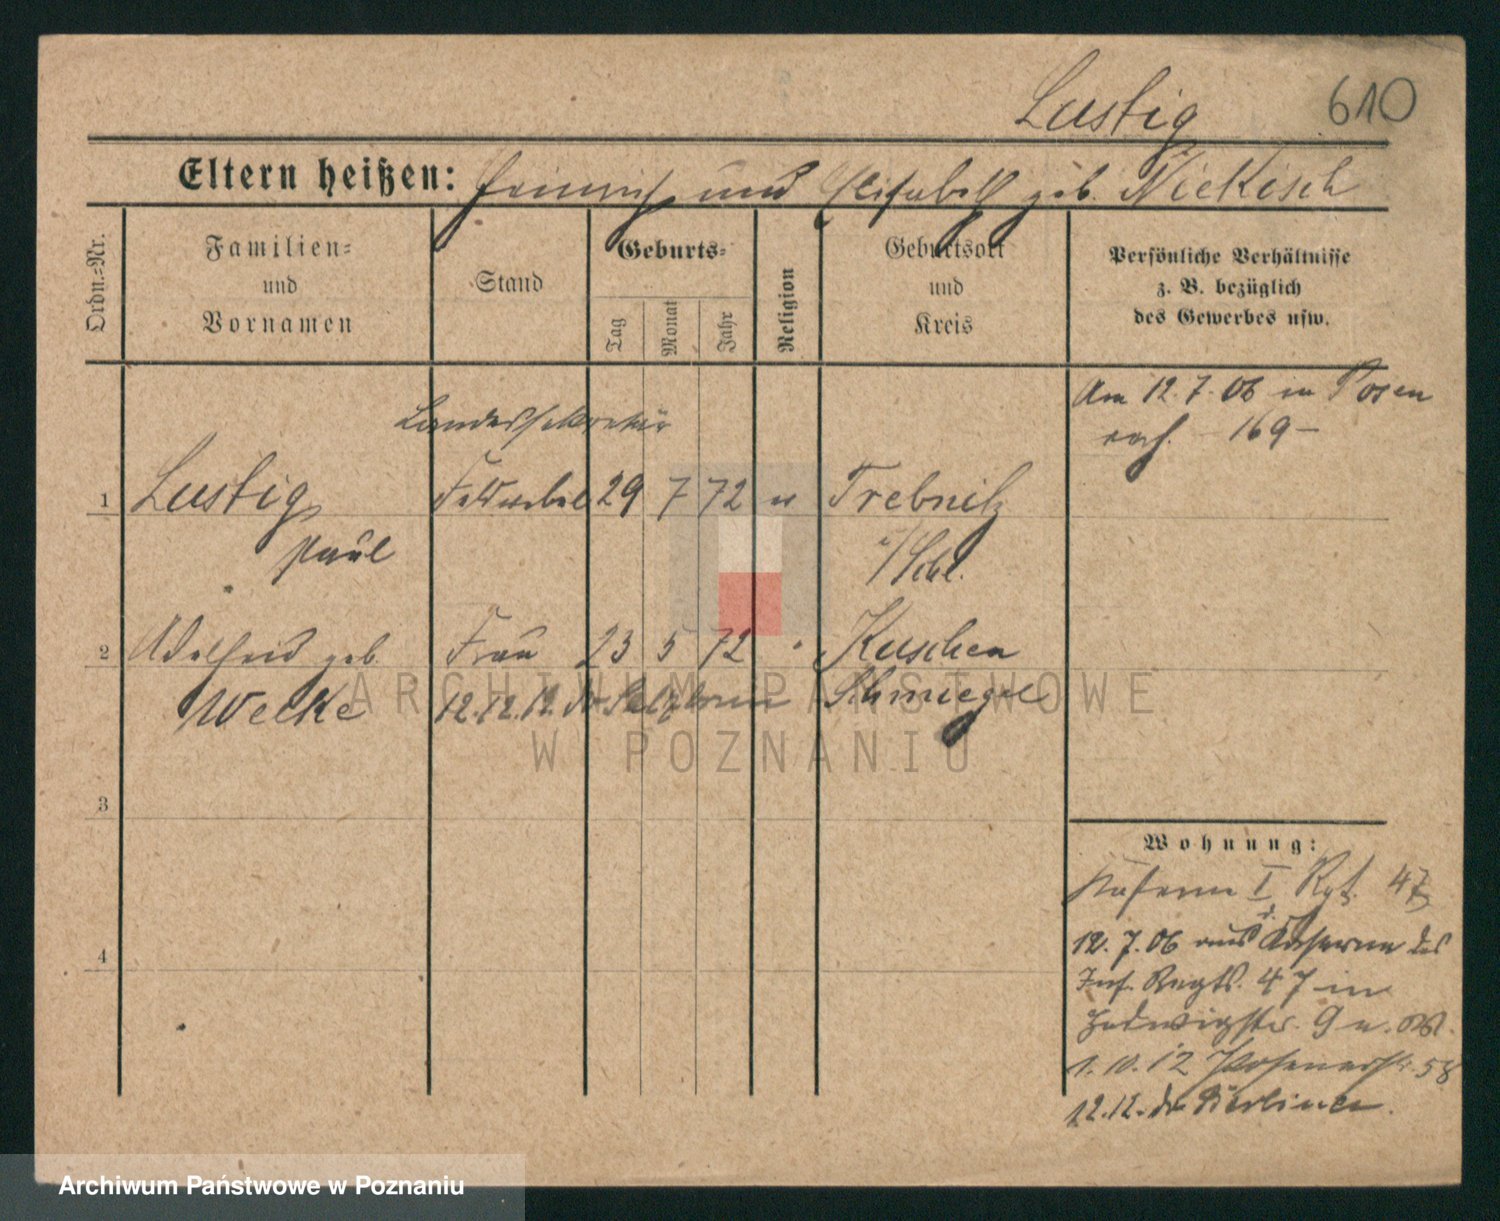 Lustig 610
Eltern heißen: Heinrich und Elisabeth geb. Nickisch
Ordn.=Nr.
Familien=
und
Vornamen
Stand
Geburts=
Tag
Monat
Jahr
Religion
Geburtsort
und
Kreis
Persönliche Verhältnisse
z. B. bezüglich
des Gewerbes usw.
Am 12.7.06 in Posen
169-
Landessekretär
1 Lustig Feldwebel 29 7 72 Trebnitz
Paul i/Schl.
2 Adelheid geb. Frau 23 5 72 Kuschen
Welke 12.12.12. Schmiegel
3
4
Wohnung:
Kaserne I Rgt. 47
12.7.06 aus d. Kaserne des
Inf. Regts. 47 in
Hedwigstr. 9
1.10.12 Posenerstr. 58
12.12. Berlinea
ARCHIWUM PAŃSTWOWE
W POZNANIU
Archiwum Państwowe w Poznaniu